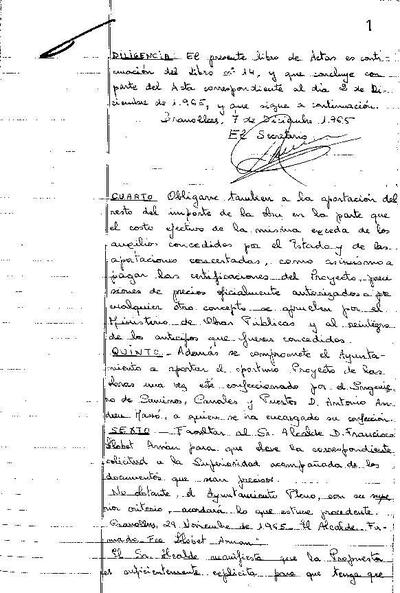 1
DILIGENCIA El presente libro de Actas es conti-
nuación del libro nº 14, y que concluye con
parte del Acta correspondiente al día 2 de Di-
ciembre de 1.965, y que sigue a continuación.
Granollers, 7 de Diciembre 1.965
El Secretario
CUARTO Obligarse tambien a la aportación del
resto del importe de la obra en la parte que
el costo efectivo de la misma exceda de los
auxilios concedidos por el Estado y de las
aportaciones concertadas, como asimismo a
pagar las certificaciones del Proyecto,
siones de precios oficialmente autorizados o por
cualquier otro concepto se aprueben por el
Ministerio de Obras Publicas y al reintegro
de los anticipos que fueren concedidos.
QUINTO.- Además se compromete el Ayunta-
miento a aportar el oportuno Proyecto de las
obras una vez esté confeccionado por el Ingenie-
ro de Caminos, Canales y Puertos D. Antonio An-
dreu Massó, a quien se ha encargado su confección.
SEXTO.- Facultar al Sr. Alcalde D. Francisco
Llobet Arnán para que eleve la correspondiente
solicitud a la Superioridad acompañada de los
documentos que sean precisos.
No obstante, el Ayuntamiento Pleno, con su supe-
rior criterio, acordará lo que estime procedente.
Granollers, 29 Noviembre de 1.965 El Alcalde. Fir-
mado. Fco Llobet Arnan"
El Sr. Alcalde manifiesta que la Propuesta
es suficientemente explícita para que tenga que